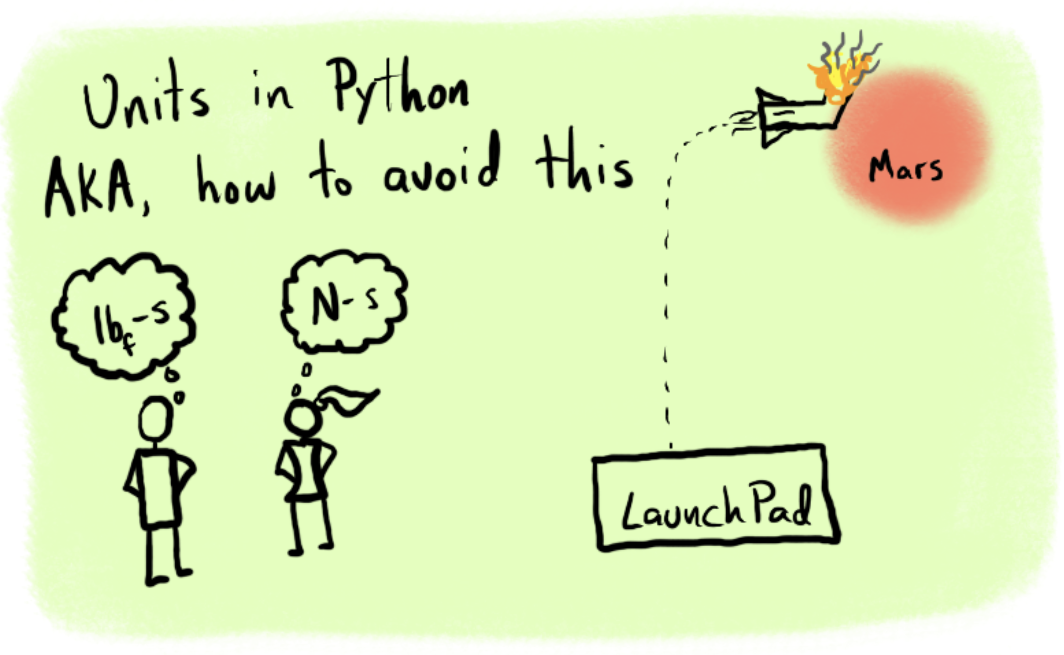 Units in Python
AKA, how to avoid this
Mars
lbf-s
N-s
LaunchPad